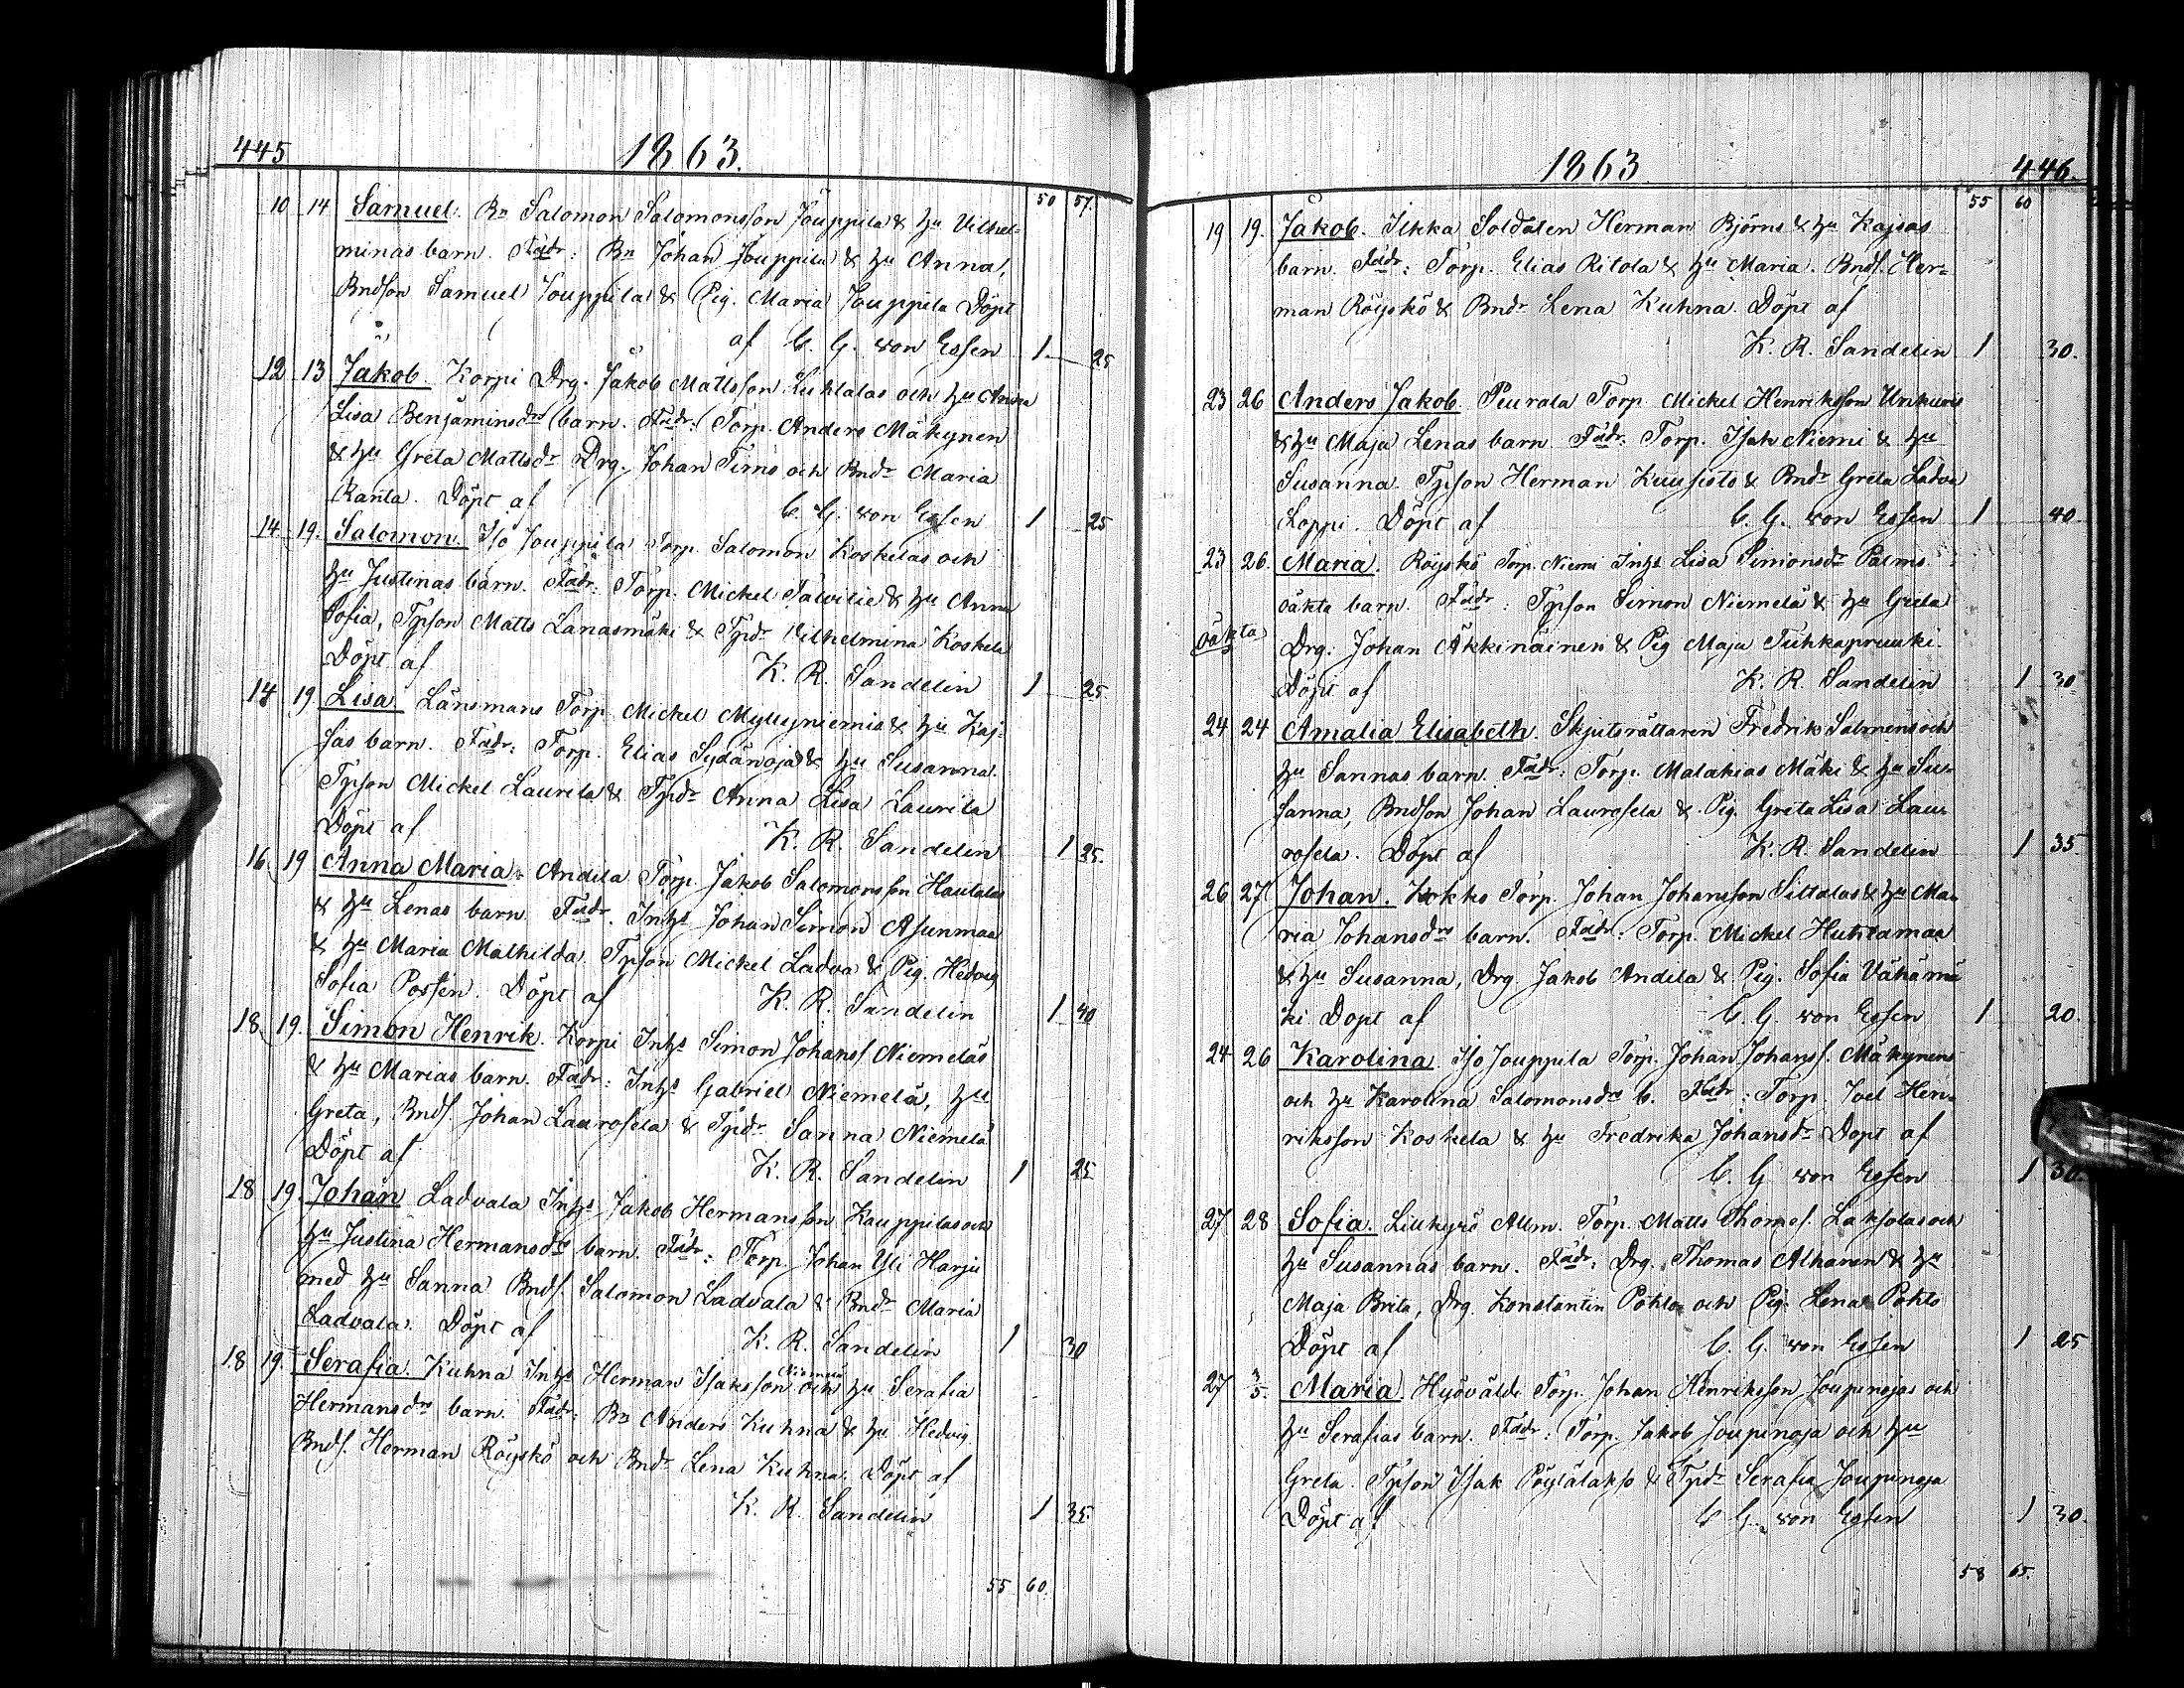 445
1863.
50 57.
10 14 Samuel. Bn Salomon Salomonsson Jouppila & hu Vilhel-
minas barn. Fadr: Bn Johan Jouppila & hu Anna,
Bndson Samuel Jouppila & Pig. Maria Jouppila Döpt
af C. G. von Essen 1 25
12 13 Jakob Korpi Drg. Jakob Mattsson Luhtalas och hu Anna
Lisa Benjaminsdrs barn. Fadr: Torp. Anders Mäkynen
& hu Greta Mattsdr Drg. Johan Tims och Bndr Maria
Ranta. Döpt af C. G. von Essen 1 25
14 19. Salomon. Iso Jouppila Torp. Salomon Koskelas och
hu Justinas barn. Fadr: Torp. Mickel & hu Anna
Sofia, Tpson Matts Lanasmäki & Tpdr Vilhelmina Koskela
Döpt af K. R. Sandelin 1 25
14 19 Lisa Länsmans Torp Mickel Myllyniemis & hu Kaj-
sas barn. Fadr: Torp. Elias Sydänoja & hu Susanna.
Tpson Mickel Laurila & Tpdr Anna Lisa Laurila
Döpt af K. R. Sandelin 1 25.
16. 19 Anna Maria. Andila Torp. Jakob Salomonsson Hautalas
& hu Lenas barn. Fadr. Inhs Johan Simon Asunmaa
& hu Maria Mathilda. Tpson Mickel Ladva & Pig. Hedvig
Sofia Possen. Döpt af K. R. Sandelin 1 40
18 19. Simon Henrik. Korpi Inhs Simon Johans. Niemeläs
& hu Marias barn. Fadr: Inhs Gabriel Niemelä, hu
Greta, Bnds. Johan Laurosela & Tpdr Sanna Niemelä
Döpt af K. R. Sandelin 1 25
18 19. Johan Ladvala Inhs Jakob Hermansson Kauppilas och
hu Justina Hermansdrs barn. Fadr: Torp Johan Yli Harju
med hu Sanna Bnds. Salomon Ladvala & Bndr Maria
Ladvala. Döpt af K. R. Sandelin 1 30
18 19. Serafia. Kuhna Inhs Herman Isaksson och hu Serafia
Hermansdrs barn. Fadr: Bn Anders Kuhna & hu Hedvig
Bnds. Herman Röyskö och Bndr Lena Kuhna. Döpt af
K. R. Sandelin 1 35.
55 60.
1863 446.
55 60
19 19. Jakob. Ilkka Soldaten Herman Björns & hu Kajsas
barn. Fadr: Torp. Elias Ritola & hu Maria. Bnds. Her-
man Röyskö & Bndr Lena Kuhna. Döpt af
K. R. Sandelin 1 30.
23 26 Anders Jakob. Peurala Torp Mickel Henriksson Unkuris
& hu Maja Lenas barn. Fadr: Torp. Isak Niemi & hu
Susanna. Tpson Herman Kuusisto & Bndr Greta Ladva
Loppi. Döpt af C. G. von Essen 1 40.
23 26. Maria. Röyskö Torp. Niemi Inhs Lisa Simonsdr Palms
oäkta barn. Fadr: Tpson Simon Niemelä & hu Greta
oäkta Drg. Johan Äkkinäinen & Pig Maja Tuhkapruuki.
Döpt af K. R. Sandelin 1 30
24 24 Amalia Elisabeth. Skjutsrättaren Fredrik Salmens och
hu Sannas barn. Fadr: Torp. Malakias Mäki & hu Su-
sanna, Bndson Johan Laurosela & Pig. Greta Lisa Lau-
rosela. Döpt af K. R. Sandelin 1 35
26 27 Johan. Kokko Torp. Johan Johansson Siltalas & hu Ma-
ria Johansdrs barn. Fadr: Torp. Mickel Huhtamaa
& hu Susanna, Drg Jakob Andila & Pig. Sofia Vähämä
ki Döpt af C. G. von Essen 1 20.
24 26 Karolina. Iso Jouppila Torp. Johan Johans. Mäkynens
och hu Karolina Salomonsdrs b. Fadr: Torp. Joel Hen-
riksson Koskela & hu Fredrika Johansdr Döpt af
C. G. von Essen 1 30.
27 28 Sofia. Liukyrö Allm. Torp. Matts Thomas. Laksolas och
hu Susannas barn. Fadr: Drg. Thomas Alhanen & hu
Maja Brita, Drg. Konstantin Pohto och Pig. Lena Pohto
Döpt af C. G. von Essen 1 25
27 3/5. Maria. Hyövälde Torp. Johan Henriksson Joupinojas och
hu Serafias barn. Fadr: Torp. Jakob Joupinoja och hu
Greta. Tpson Isak Pöytälakso & Tpdr Serafia Joupinoja
Döpt af C. G. von Essen 1 30.
58 65.